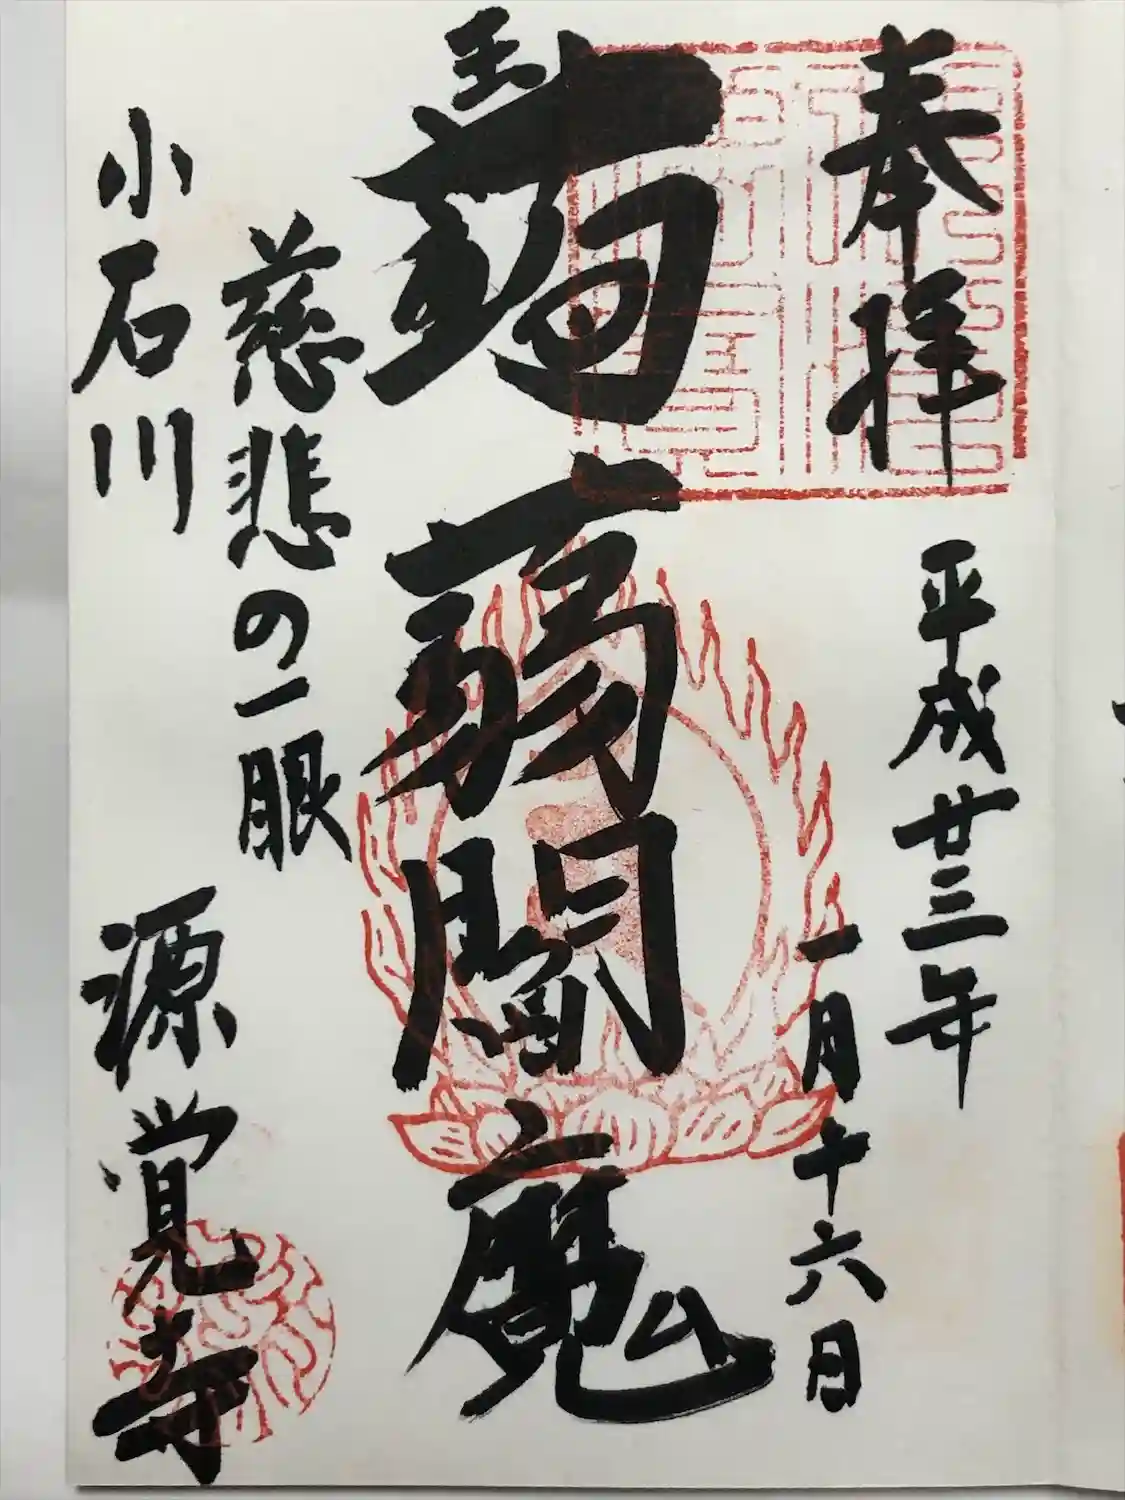 奉拝
平成廿三年
一月十六日
蒟蒻閻魔
慈悲の一眼
小石川 源覚寺